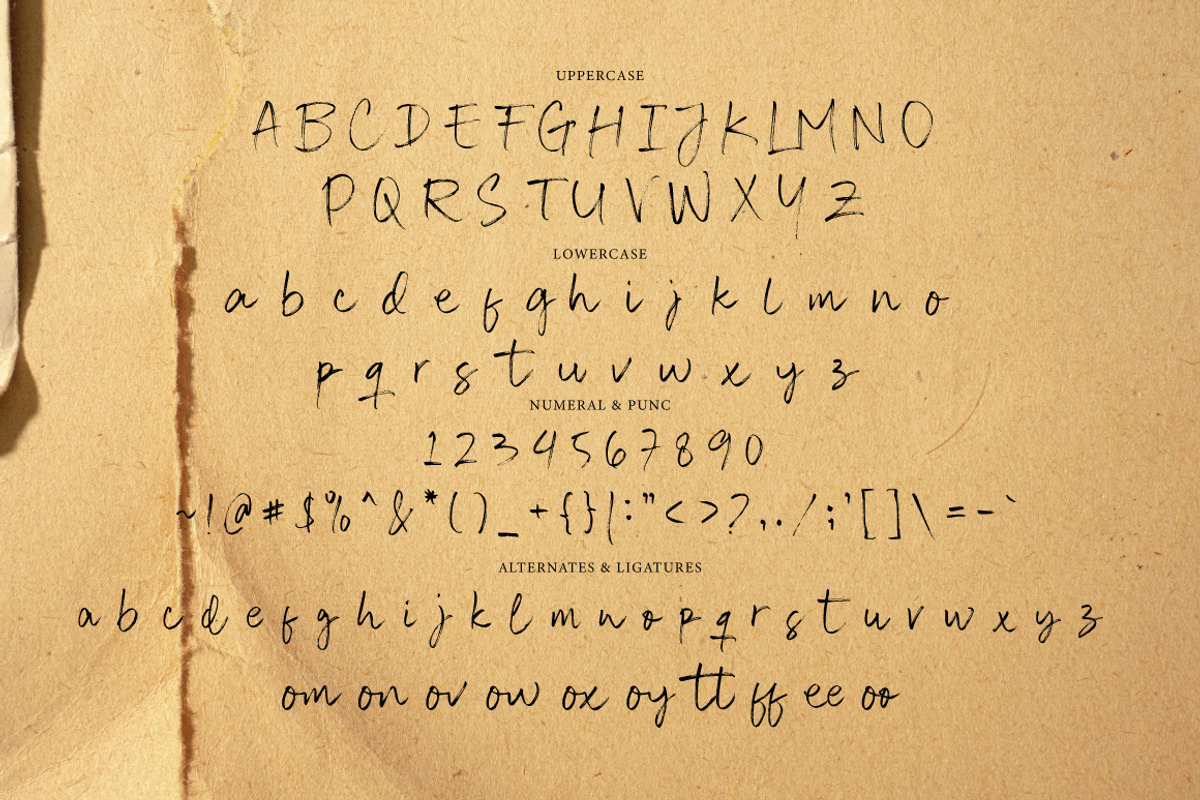 UPPERCASE
A B C D E F G H I J K L M N O
P Q R S T U V W X Y Z
LOWERCASE
a b c d e f g h i j k l m n o
p q r s t u v w x y z
NUMERAL & PUNC
1 2 3 4 5 6 7 8 9 0
~ ! @ # $ % ^ & * ( ) _ + { } | : " < > ? , . / ; ' [ ] \ = - `
ALTERNATES & LIGATURES
a b c d e f g h i j k l m n o p q r s t u v w x y z
om on ov ow ox oy tt ff ee oo